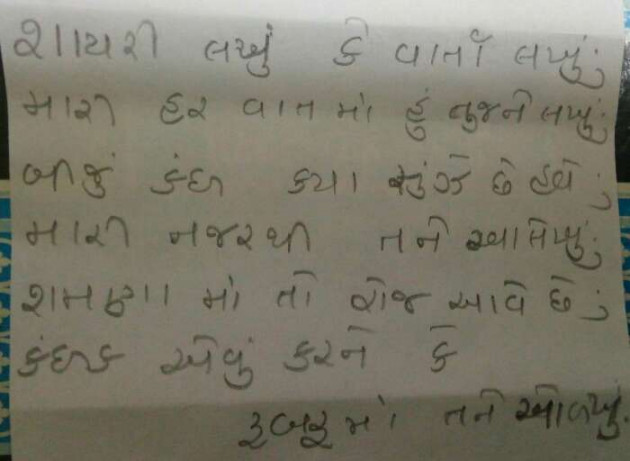 શાયરી લખું કે વાર્તા લખું;
મારી હર વાત માં હું તુજને લખું;
બીજું કંઇ કયા સુંઝે છે હવે;
મારી નજરથી તને આલેખું;
શમણા માં તો રોજ આવે છે;
કંઇક એવું કરને કે
રૂબરૂ માં તને ઓળખું.